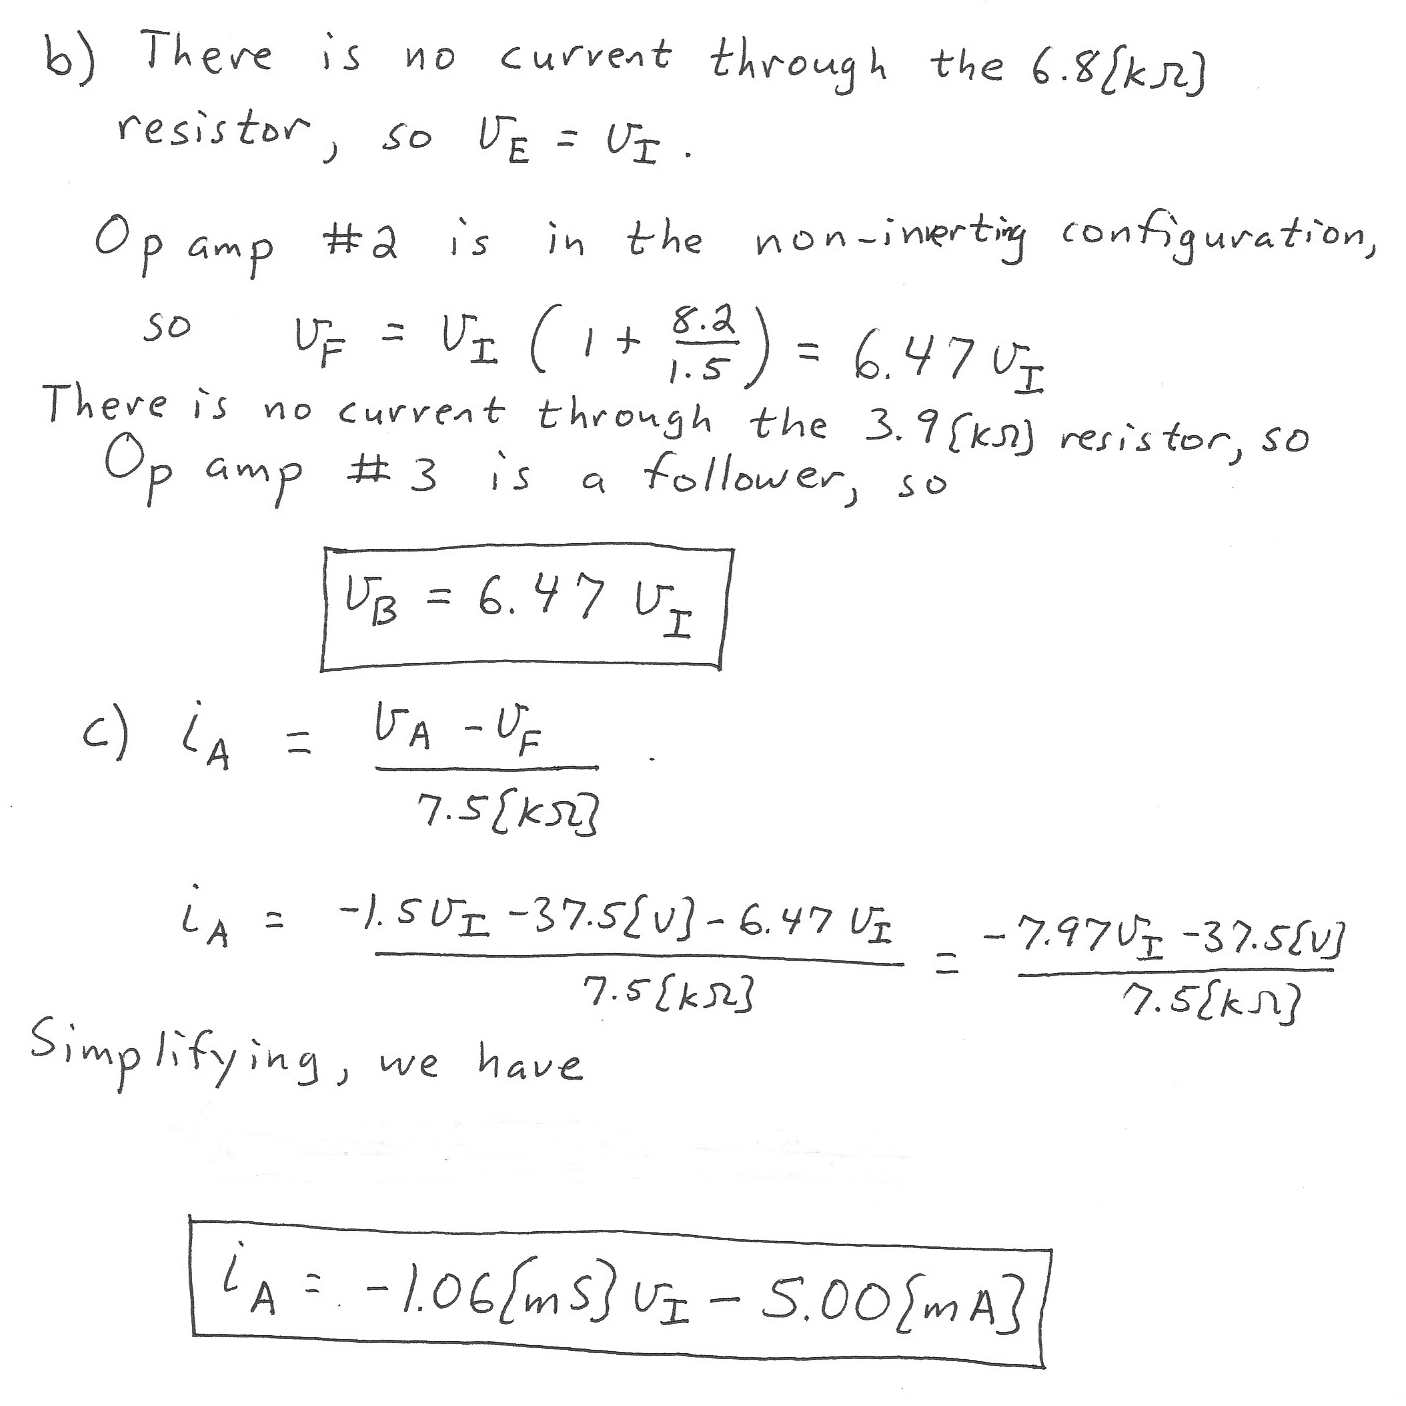 b) There is no current through the 6.8[kΩ]
resistor, so v_E = v_I.
Op amp #2 is in the non-inverting configuration,
so v_F = v_I (1 + 8.2/1.5) = 6.47 v_I
There is no current through the 3.9[kΩ] resistor, so
Op amp #3 is a follower, so
v_B = 6.47 v_I
c) i_A = (v_A - v_F) / 7.5[kΩ].
i_A = (-1.5 v_I - 37.5[V] - 6.47 v_I) / 7.5[kΩ] = (-7.97 v_I - 37.5[V]) / 7.5[kΩ]
Simplifying, we have
i_A = -1.06[mS] v_I - 5.00[mA]